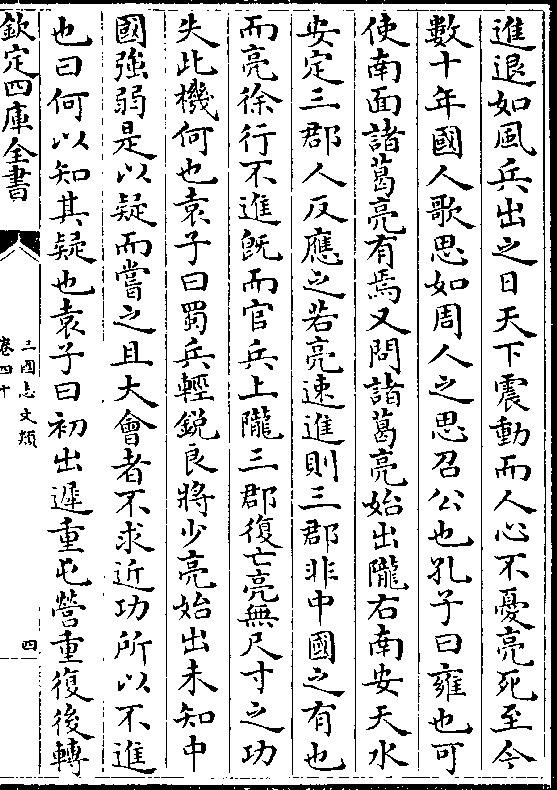 進退如風兵出之日天下震動而人心不憂亮死至今
數十年國人歌思如周人之思召公也孔子曰雍也可
使南面諸葛亮有焉又問諸葛亮始出隴右南安天水
安定三郡人反應之若亮速進則三郡非中國之有也
而亮徐行不進旣而官兵上隴三郡復亡亮無尺寸之功
失此機何也袁子曰蜀兵輕銳良將少亮始出未知中
國強弱是以疑而嘗之且大會者不求近功所以不進
也曰何以知其疑也袁子曰初出遲重屯營重復後轉
欽定四庫全書
三國志文類
卷四十
四